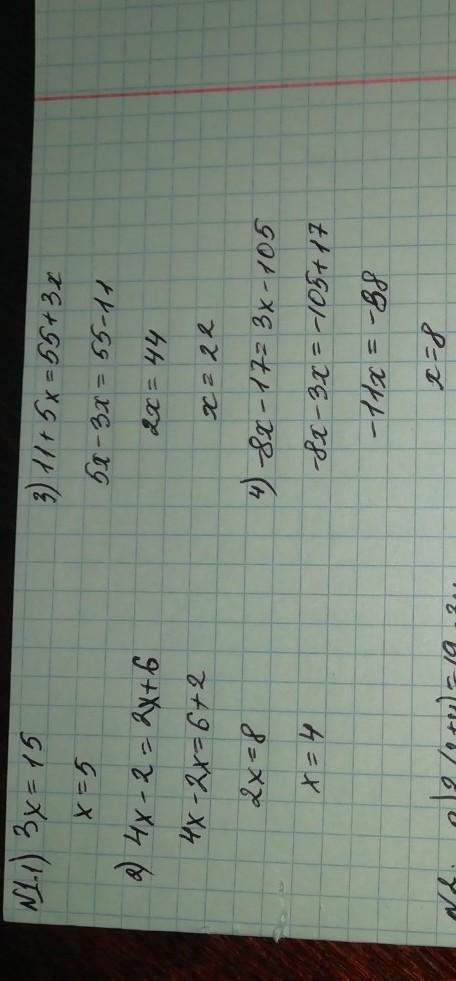 N1.1) 3x = 15
x = 5
2) 4x - 2 = 2x + 6
4x - 2x = 6 + 2
2x = 8
x = 4
3) 11 + 5x = 55 + 3x
5x - 3x = 55 - 11
2x = 44
x = 22
4) -8x - 17 = 3x - 105
-8x - 3x = -105 + 17
-11x = -88
x = 8